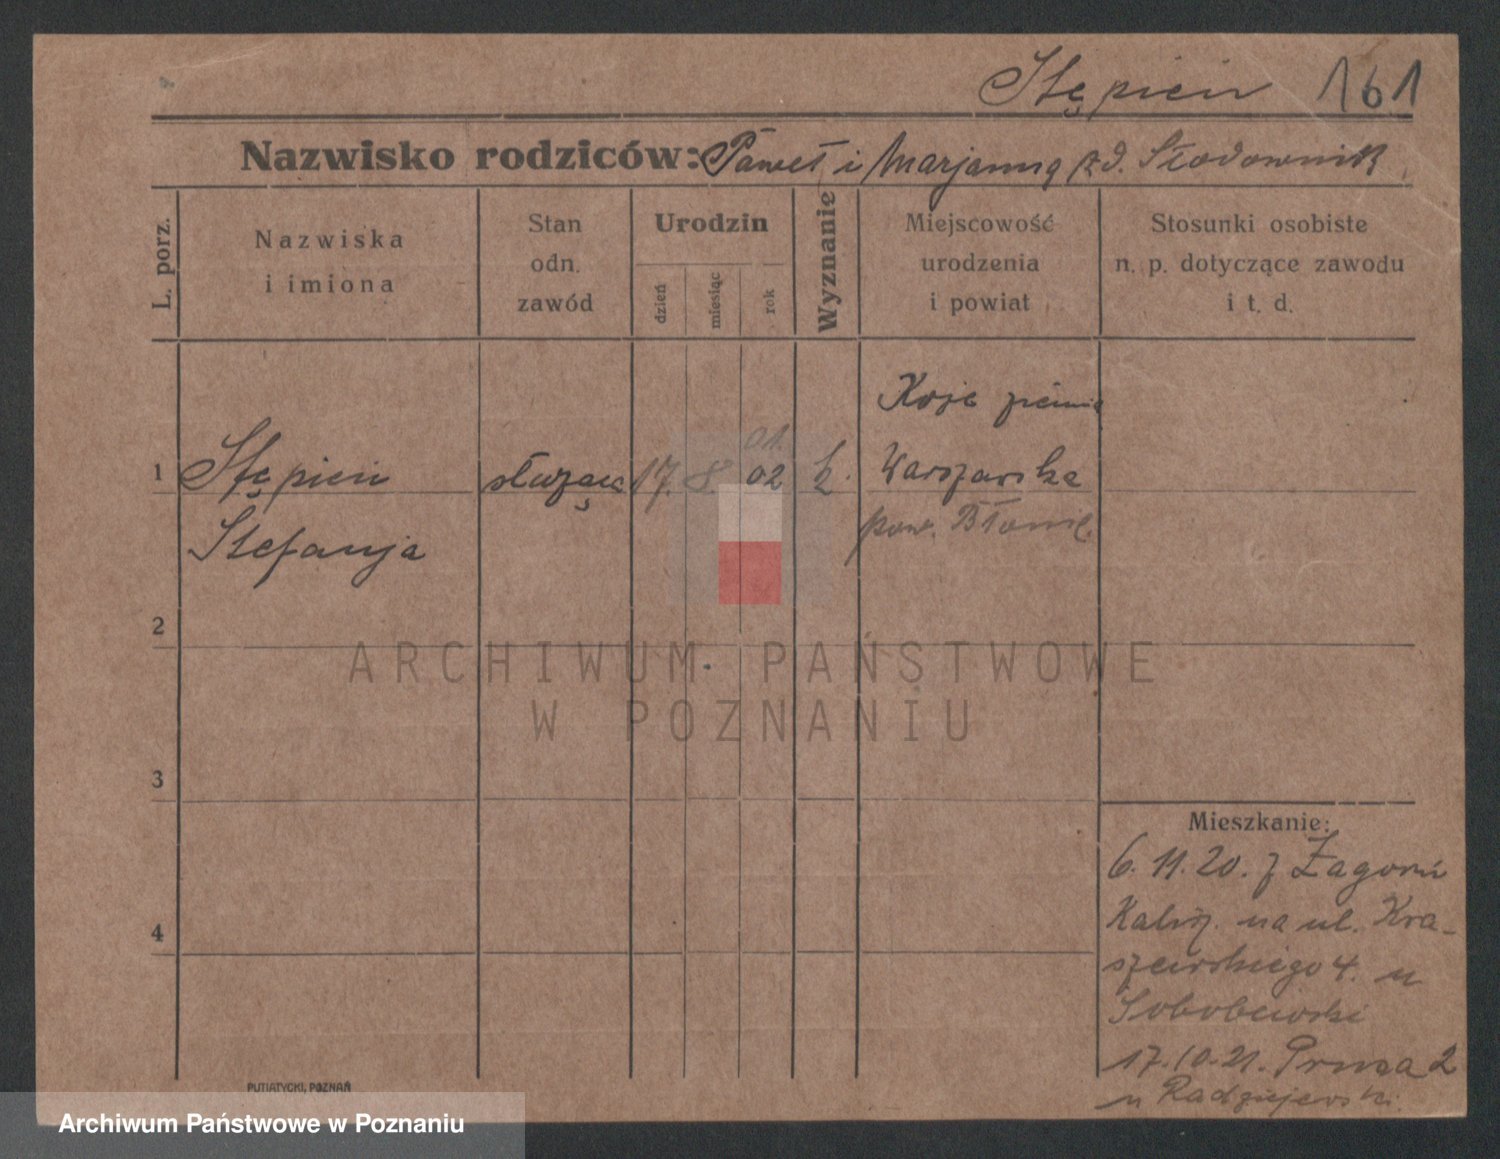 Stępień 161
Nazwisko rodziców: Paweł i Marjanna zd. Słodownik
L. porz.
Nazwiska
i imiona
Stan
odn.
zawód
Urodzin
dzień
miesiąc
rok
Wyznanie
Miejscowość
urodzenia
i powiat
Stosunki osobiste
n. p. dotyczące zawodu
i t. d.
1
Stępień
Stefanja
służąca
17. 8. 02
01.
k.
ziemia
Warszawska
pow. Błonie
2
3
4
Mieszkanie:
6.11.20. z Zagorów
Kalisz. na ul. Kra-
szewskiego 4. u
17.10.21. Prusa 2
u Radziejewski.
PUTIATYCKI, POZNAŃ
ARCHIWUM PAŃSTWOWE
W POZNANIU
Archiwum Państwowe w Poznaniu